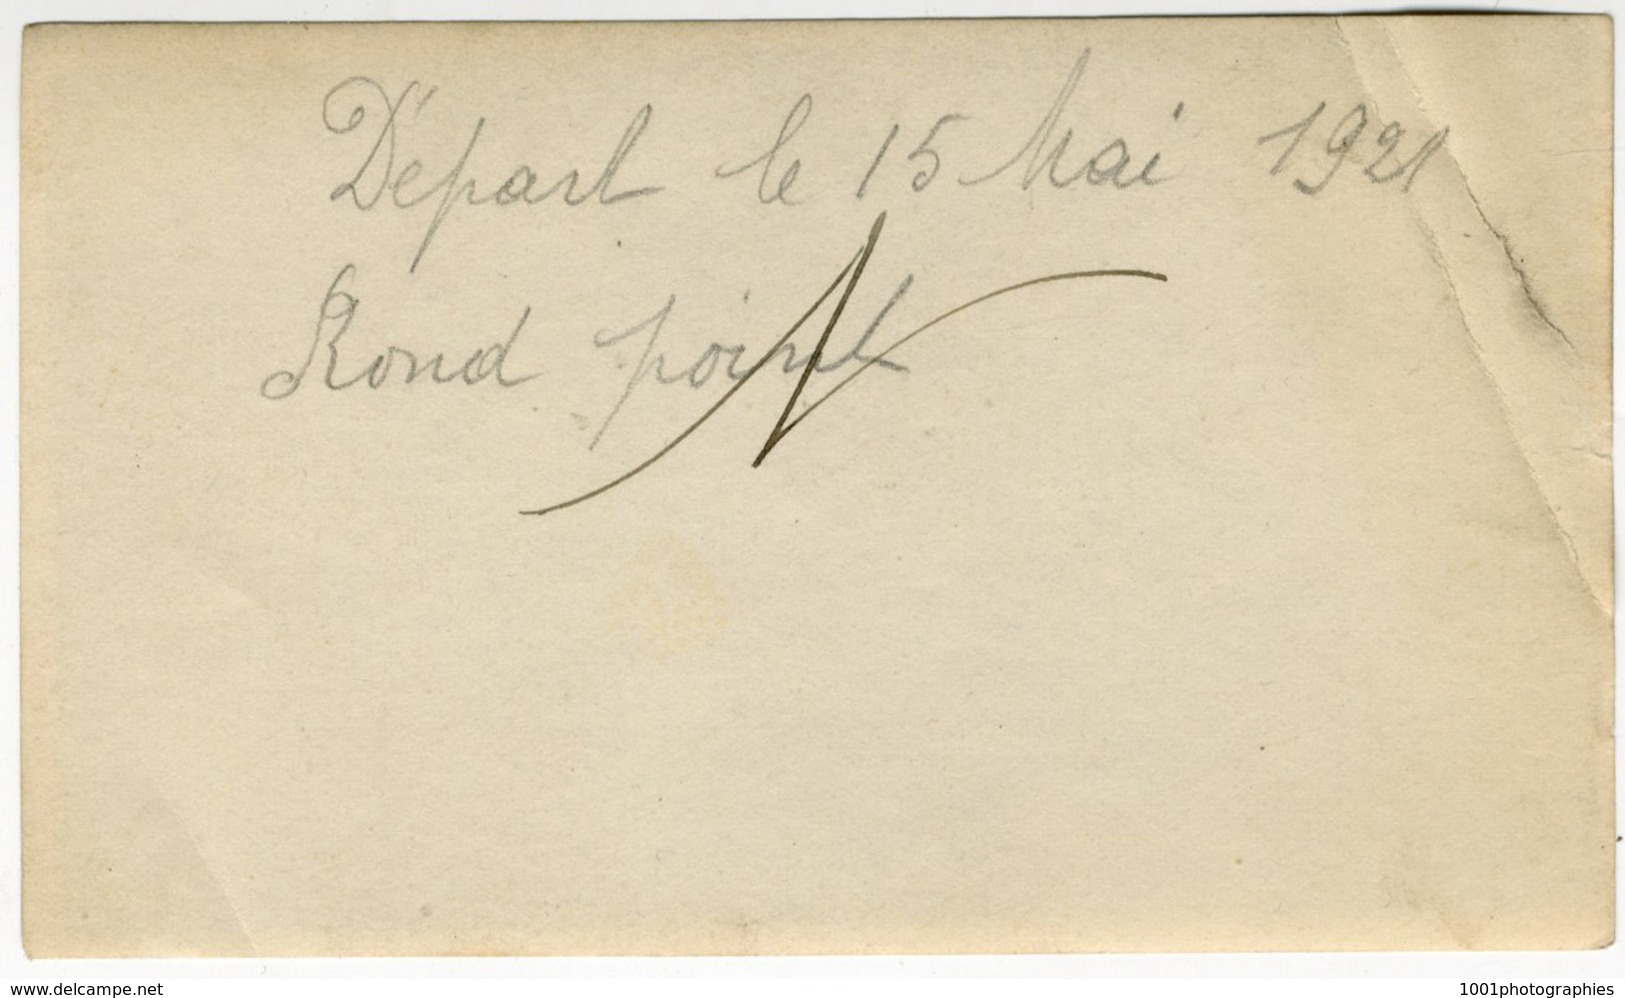 Départ le 15 Mai 1921
Rond point
www.delcampe.net
1001photographies